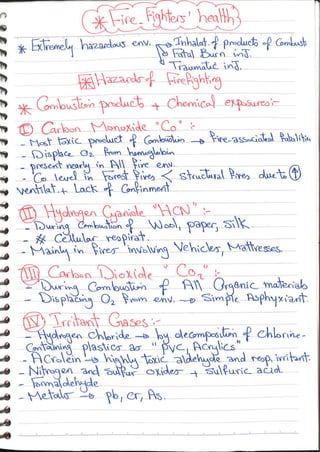 * Fire-Fighters' health
* Extremely hazardous env. → Inhalat. of products of Combust
→ Fatal Burn inJ.
→ Traumatic inJ.
* Hazards of Firefighting
* Combustion products + Chemical exposures:-
I Carbon Monoxide "Co" :-
- Most toxic product of Combustion → Fire-associated Fatalities
- Displace O2 from hemoglobin.
- present nearly in All fire env.
- Co level in Forest Fires < Structural Fires due to ↑
ventilat. + Lack of Confinment
II Hydrogen Cyanide "HCN" :-
- During Combustion of Wool, paper, Silk.
- * Cellular respirat.
- Mainly in Fires involving Vehicles, Mattresses.
III Carbon Dioxide "Co2" :-
- During Combustion of All Organic materials
- Displacing O2 from env. → Simple Asphyxiant.
IV Irritant Gases :-
- Hydrogen Chloride → by decomposition of chlorine-
Containing plastics as "PVC, Acrylics"
- Acrolein → highly toxic aldehyde and resp. irritant.
- Nitrogen and Sulfur oxides + Sulfuric acid
- Formaldehyde
- Metals → pb, cr, As.